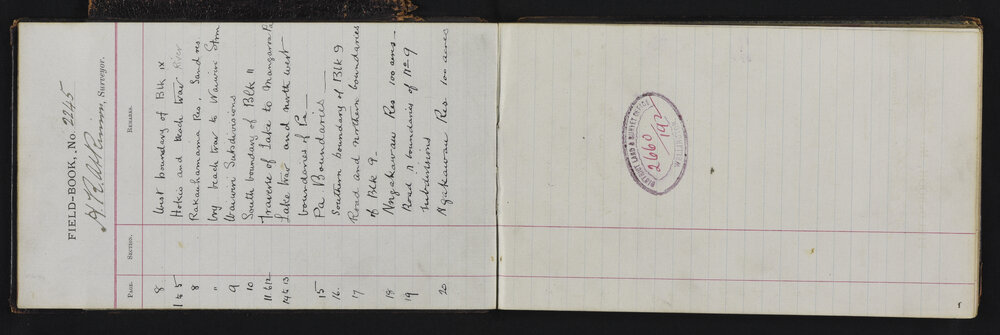 FIELD-BOOK, No. 2245
Surveyor.
PAGE. SECTION. REMARKS.
8 West boundary of Blk IX
1 to 5 Hokio and Beach trav River
8 Rakauhamama Res. Sand res
" beach trav to Waiwiri Strm
9 Waiwiri Subdivisions
10 South boundary of Blk 11
11 & 12 Traverse of Lake to Mangaroa Pa
14 & 13 Lake trav and north west
boundaries of Pa
15 Pa Boundaries
16. Southern boundary of Blk 9
17 Road and northern boundaries
of Blk 9
18 Ngakawau Res 100 acres
19 Road & boundaries of No 9
subdivisions
20 Ngakawau Res 100 acres
DISTRICT LAND & SURVEY OFFICE
2660
/192
WELLINGTON